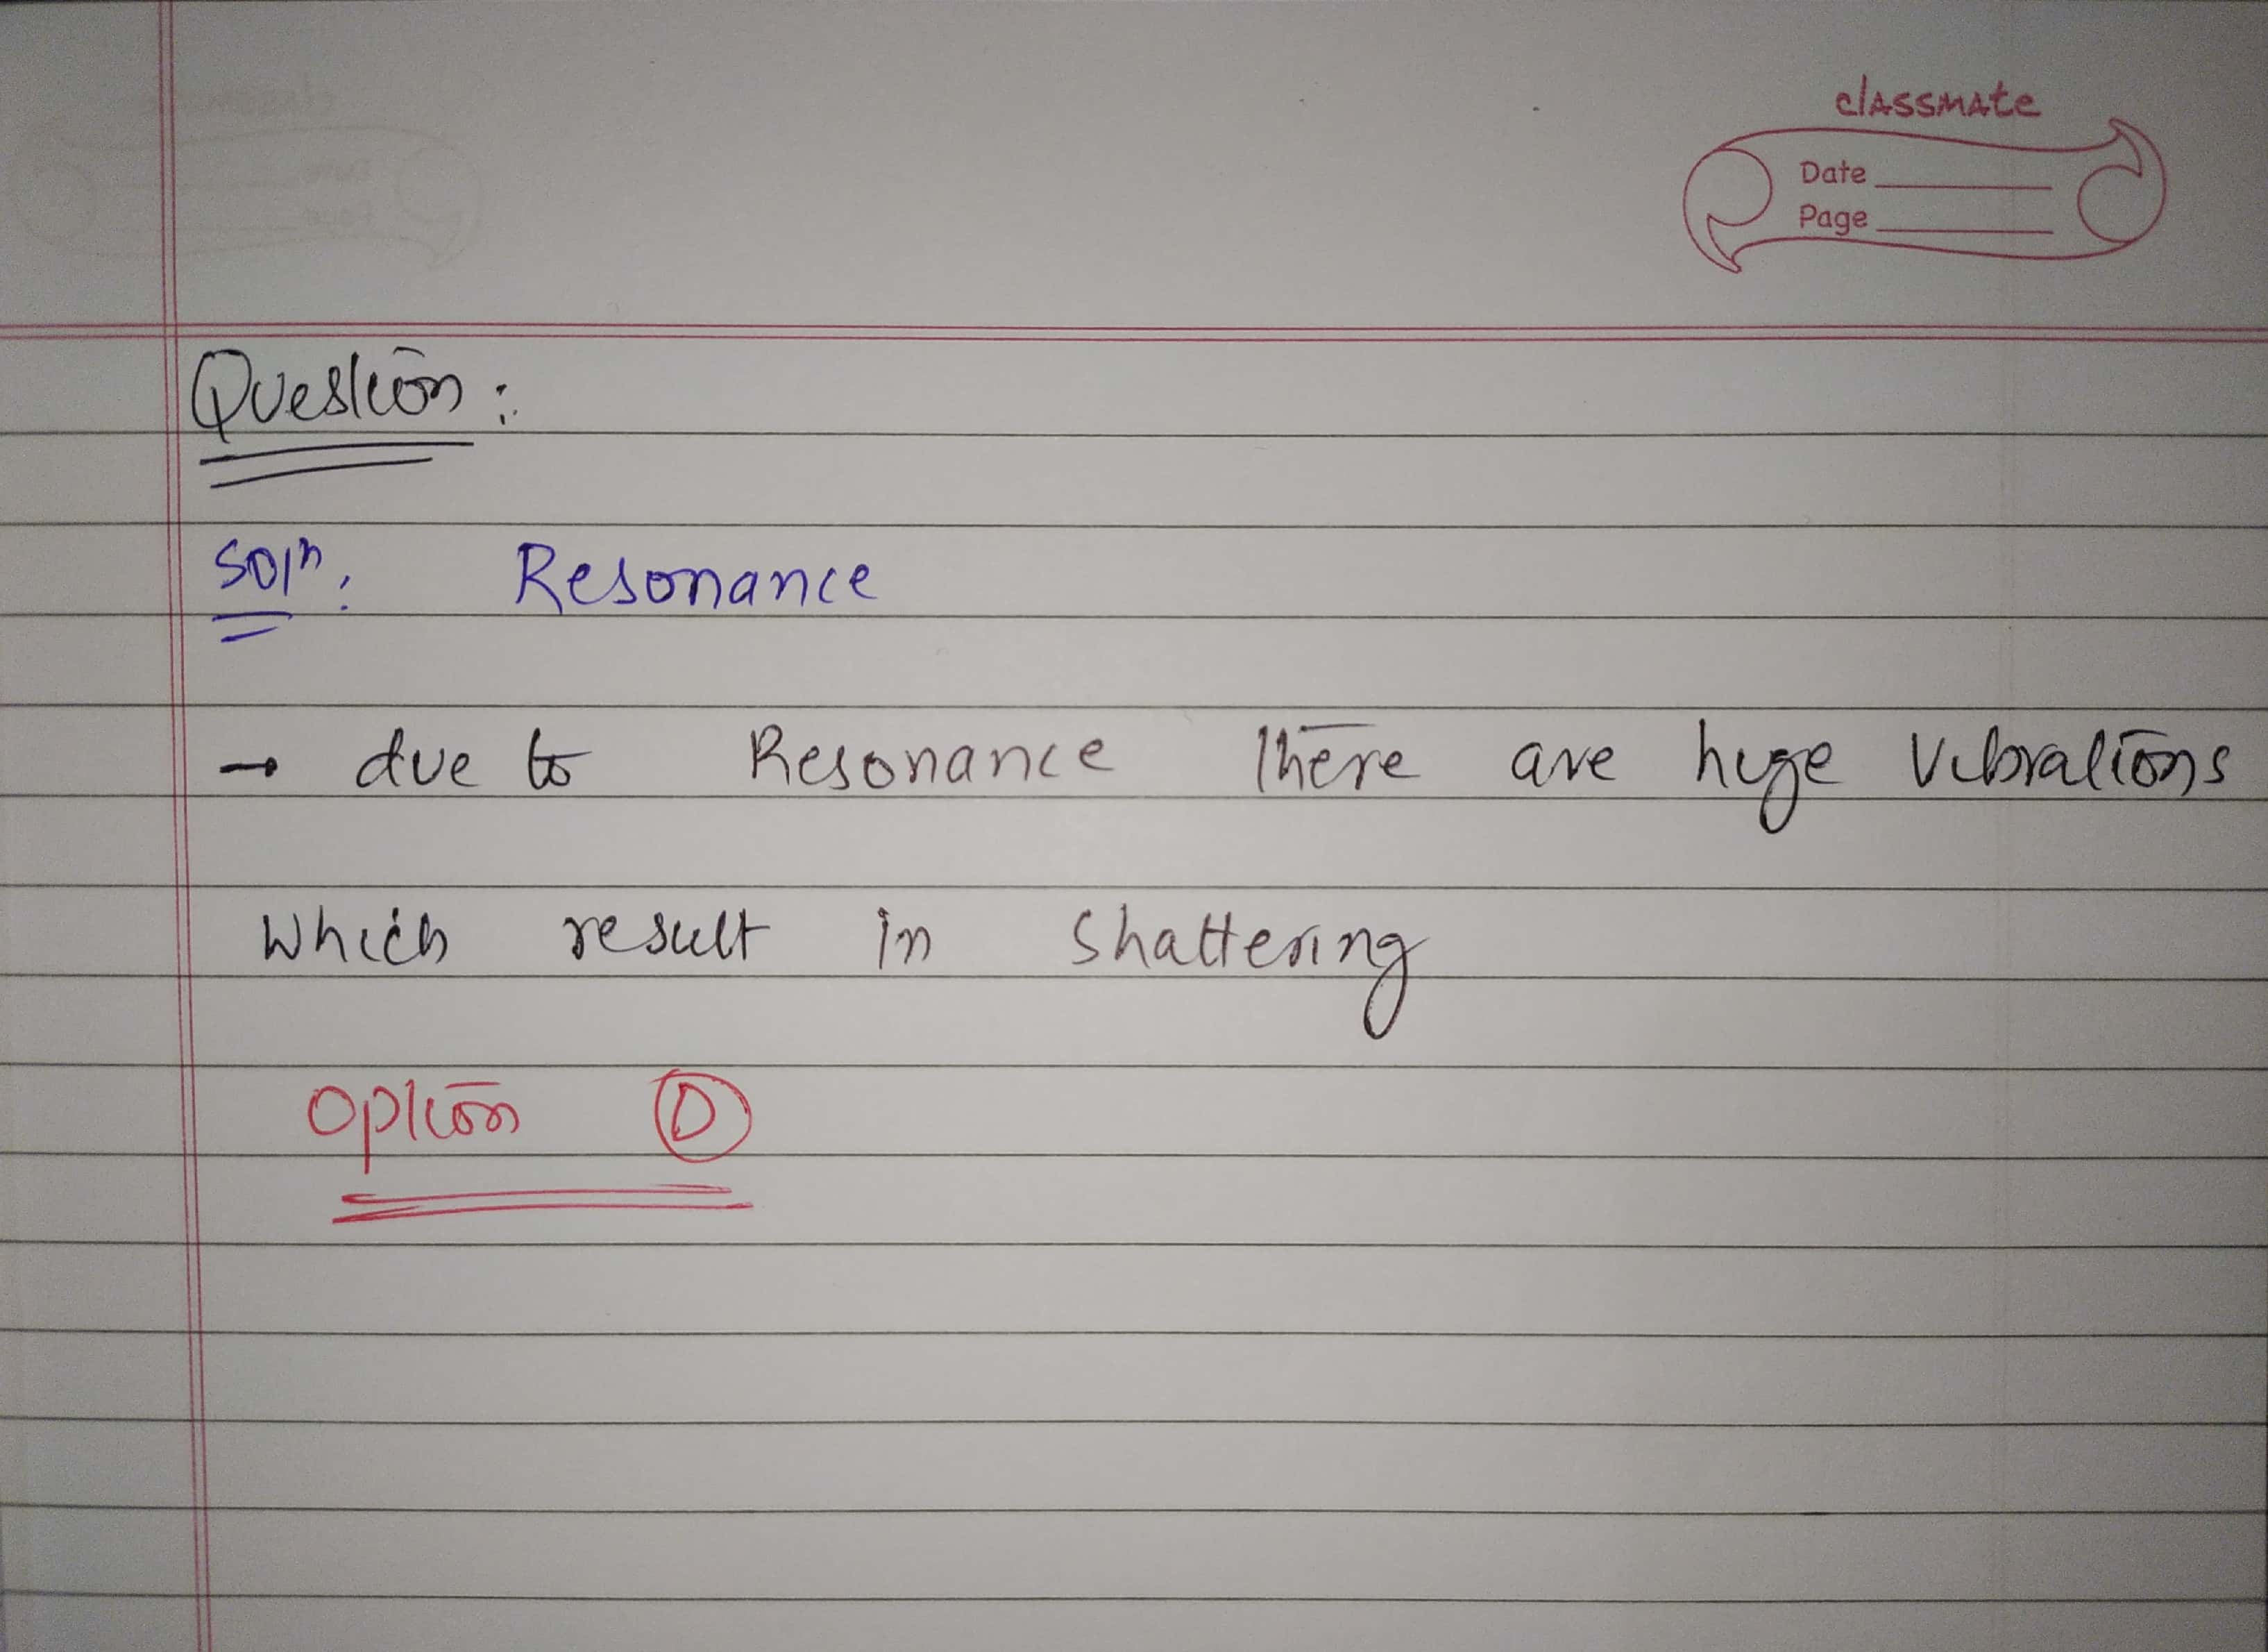 classmate
Date
Page
Question:
Soln: Resonance
→ due to Resonance there are huge vibrations
which result in shattering
option D